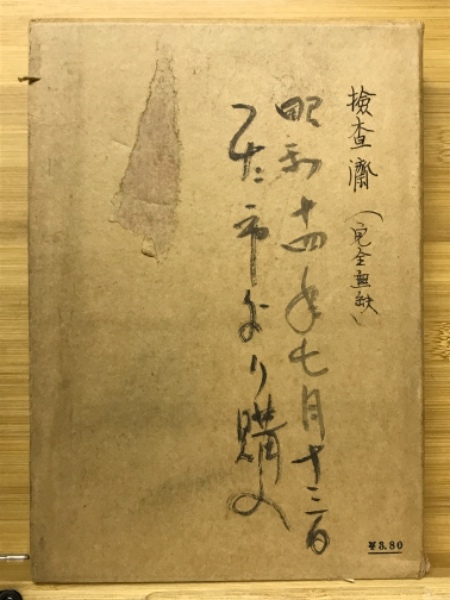 檢查濟（完全無缺）
昭和十四年七月十三日
市より購入
¥3.80